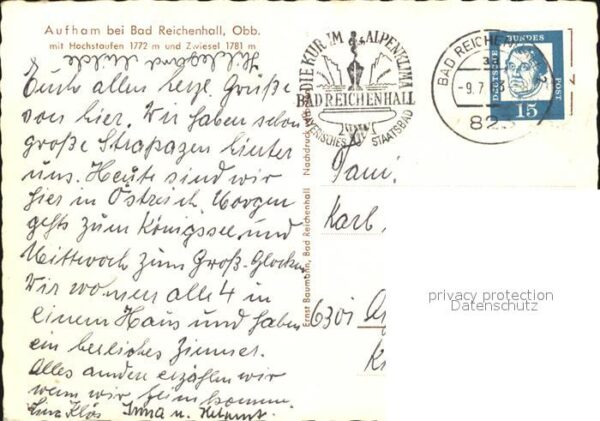 Aufham bei Bad Reichenhall, Obb.
mit Hochstaufen 1772 m und Zwiesel 1781 m
Euch allen herzl. Grüße
von hier. Wir haben schon
große Strapazen hinter
uns. Heute sind wir
hier in Östreich. Morgen
gehts zum Königssee und
Mittwoch zum Groß-Glockn
Wir wohnen alle 4 in
einem Haus und haben
ein herliches Zimmer.
Alles andere erzählen wir
wenn wir heim kommen.
Irma u. Helmut
Ernst Baumann, Bad Reichenhall Nachdruck
DIE KUR IM ALPENKLIMA
BAD REICHENHALL
BAYERISCHES STAATSBAD
BAD REICHENHALL 2
-9.7
82
DEUTSCHE BUNDESPOST
15
2
Fam.
Karl
6301
privacy protection
Datenschutz